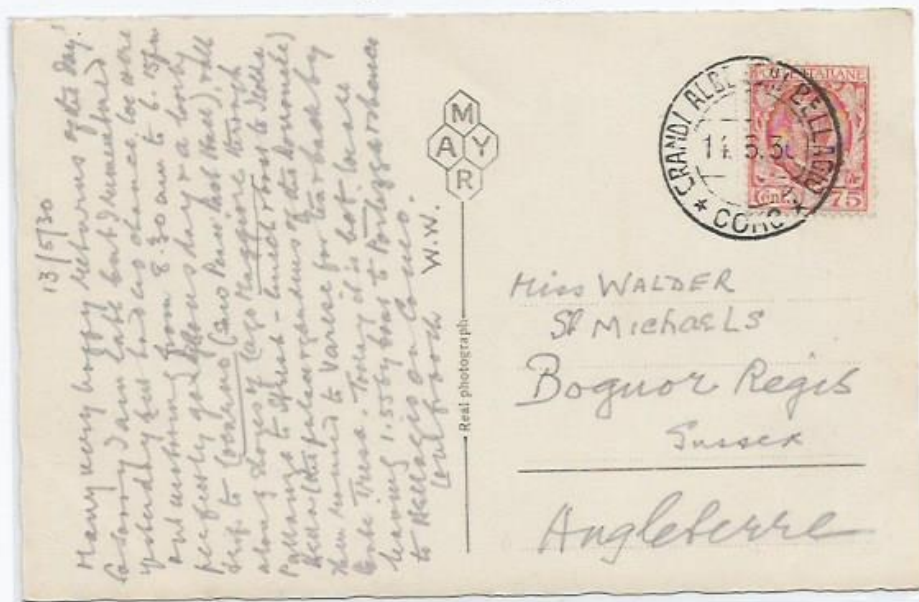 13/5/30
Many very happy returns of the day!
Sorry I am late but I remembered
yesterday but had no chance, we were
out motoring from 8.30 am to 6.15 pm
perfectly glorious day & a lovely
trip to Locarno (saw Music last Hall), &
along shores of Lago Maggiore through
Pallanza to Stresa - lunch & boat to Isola
Bella (the palace gardens of the Borromeo)
then inland to Varese for tea & back by
Ponte Tresa. Today it is hot & we are
leaving 1.55 by boat to Porlezza & thence
to Bellagio on Como.
Love from
W.W.
MAYR
Real photograph
GRANDI ALBERGHI BELLAGIO
14.5.30
* COMO *
POSTE ITALIANE
Cent. 75
Miss WALDER
St Michaels
Bognor Regis
Sussex
Angleterre